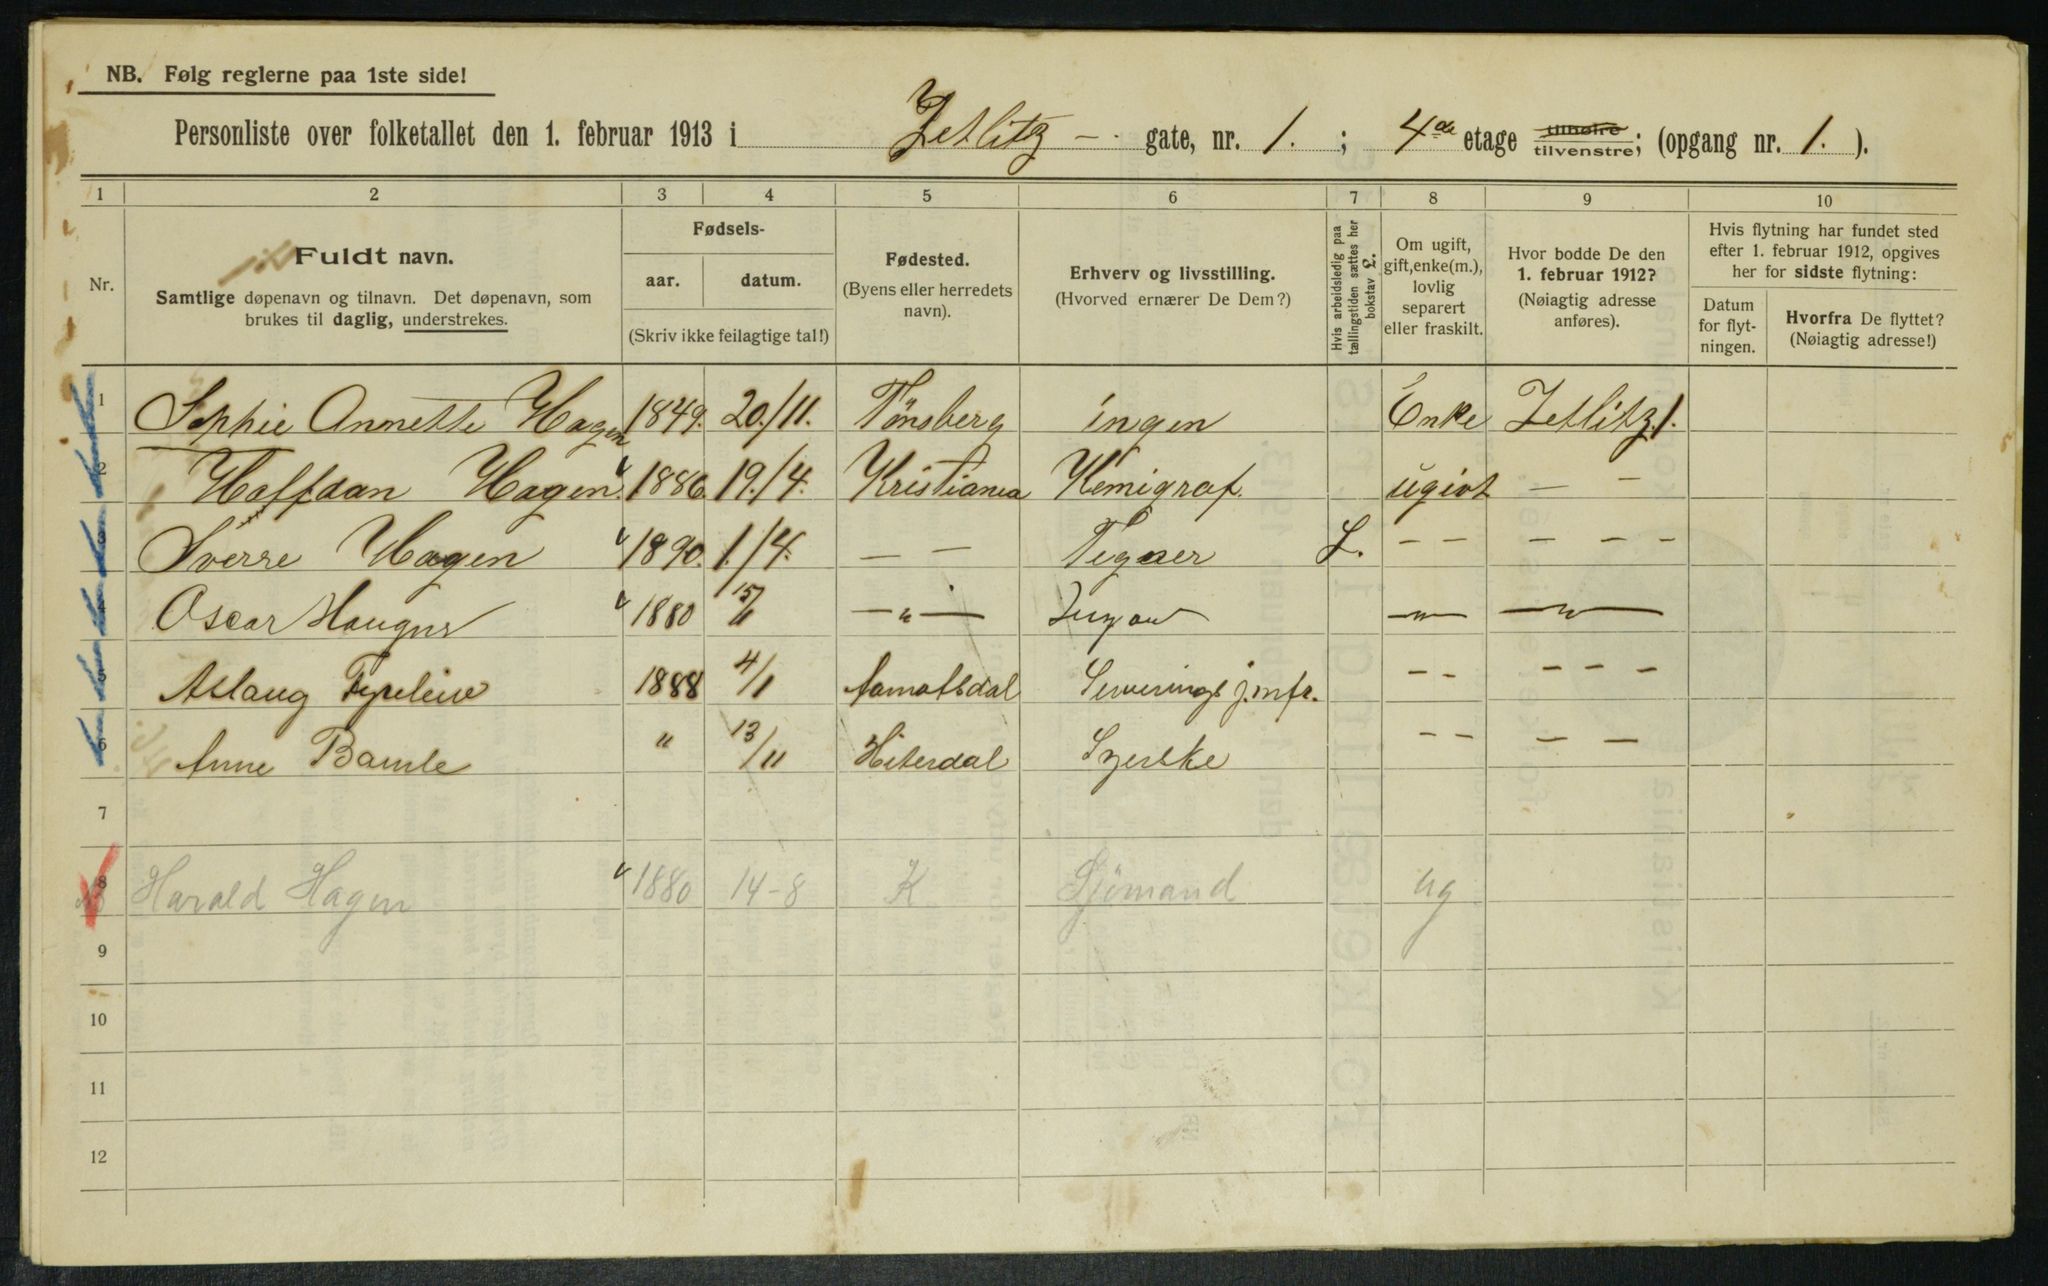 NB. Følg reglerne paa 1ste side!
Personliste over folketallet den 1. februar 1913 i Zetlitz - gate, nr. 1. ; 4de etage tilhøire tilvenstre; (opgang nr. 1. ).
1 2 3 4 5 6 7 8 9 10
Nr.
Fuldt navn.
Samtlige døpenavn og tilnavn. Det døpenavn, som
brukes til daglig, understrekes.
Fødsels-
aar. datum.
(Skriv ikke feilagtige tal!)
Fødested.
(Byens eller herredets
navn).
Erhverv og livsstilling.
(Hvorved ernærer De Dem?)
Hvis arbeidsledig paa
tællingstiden sættes her
bokstav L.
Om ugift,
gift, enke(m.),
lovlig
separert
eller fraskilt.
Hvor bodde De den
1. februar 1912?
(Nøiagtig adresse
anføres).
Hvis flytning har fundet sted
efter 1. februar 1912, opgives
her for sidste flytning:
Datum
for flyt-
ningen.
Hvorfra De flyttet?
(Nøiagtig adresse!)
1 Sophie Annette Hagen 1849. 20./11. Tönsberg ingen Enke Zetlitz. 1.
2 Halfdan Hagen. 1886. 19./4. Kristiania Kemigraf. ugivt — -
3 Sverre Hagen 1890. 1./4. — — Tegner L. - - - - -
4 Oscar 1880 15/ —"— —"— —"—
5 Aslaug 1888 4/1 Aamotsdal Serverings jmfr. - - - - -
6 Anne Bamle " 13/11 Hiterdal - - — —
7
8 Harald Hagen 1880 14-8 K Sjömand ug
9
10
11
12